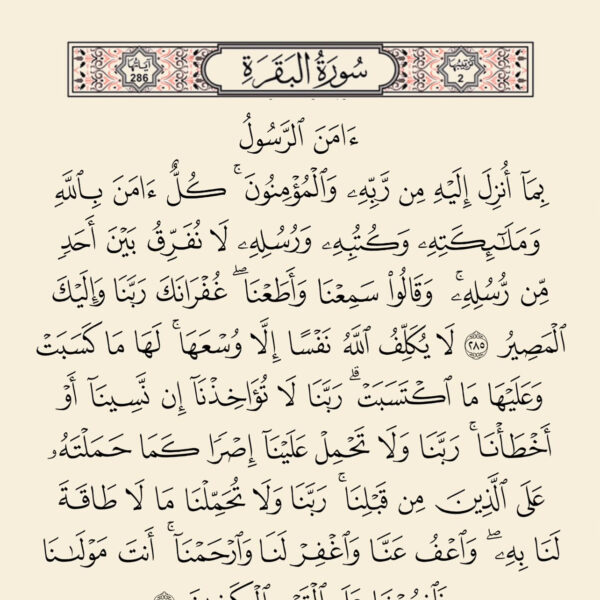 آيَاتُهَا 286
سُورَةُ الْبَقَرَةِ
تَرْتِيبُهَا 2
ءَامَنَ ٱلرَّسُولُ
بِمَآ أُنزِلَ إِلَيْهِ مِن رَّبِّهِۦ وَٱلْمُؤْمِنُونَ ۚ كُلٌّ ءَامَنَ بِٱللَّهِ
وَمَلَـٰٓئِكَتِهِۦ وَكُتُبِهِۦ وَرُسُلِهِۦ لَا نُفَرِّقُ بَيْنَ أَحَدٍ
مِّن رُّسُلِهِۦ ۚ وَقَالُوا۟ سَمِعْنَا وَأَطَعْنَا ۖ غُفْرَانَكَ رَبَّنَا وَإِلَيْكَ
ٱلْمَصِيرُ ٢٨٥ لَا يُكَلِّفُ ٱللَّهُ نَفْسًا إِلَّا وُسْعَهَا ۚ لَهَا مَا كَسَبَتْ
وَعَلَيْهَا مَا ٱكْتَسَبَتْ ۗ رَبَّنَا لَا تُؤَاخِذْنَآ إِن نَّسِينَآ أَوْ
أَخْطَأْنَا ۚ رَبَّنَا وَلَا تَحْمِلْ عَلَيْنَآ إِصْرًا كَمَا حَمَلْتَهُۥ
عَلَى ٱلَّذِينَ مِن قَبْلِنَا ۚ رَبَّنَا وَلَا تُحَمِّلْنَا مَا لَا طَاقَةَ
لَنَا بِهِۦ ۖ وَٱعْفُ عَنَّا وَٱغْفِرْ لَنَا وَٱرْحَمْنَآ ۚ أَنتَ مَوْلَىٰنَا